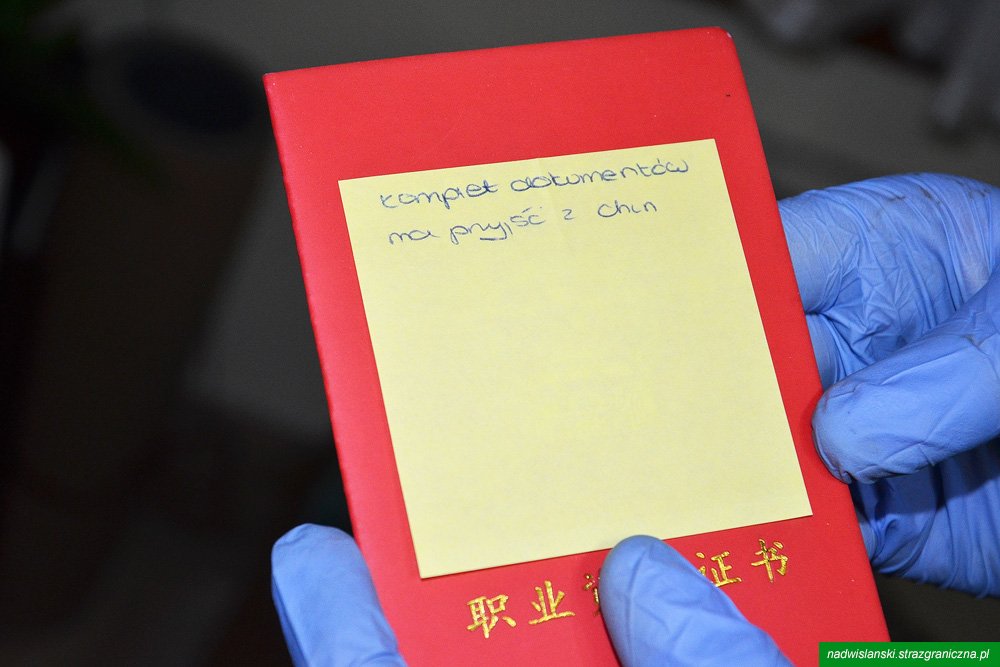 komplet dokumentów
ma przyjść z Chin
职业 证书
nadwislanski.strazgraniczna.pl